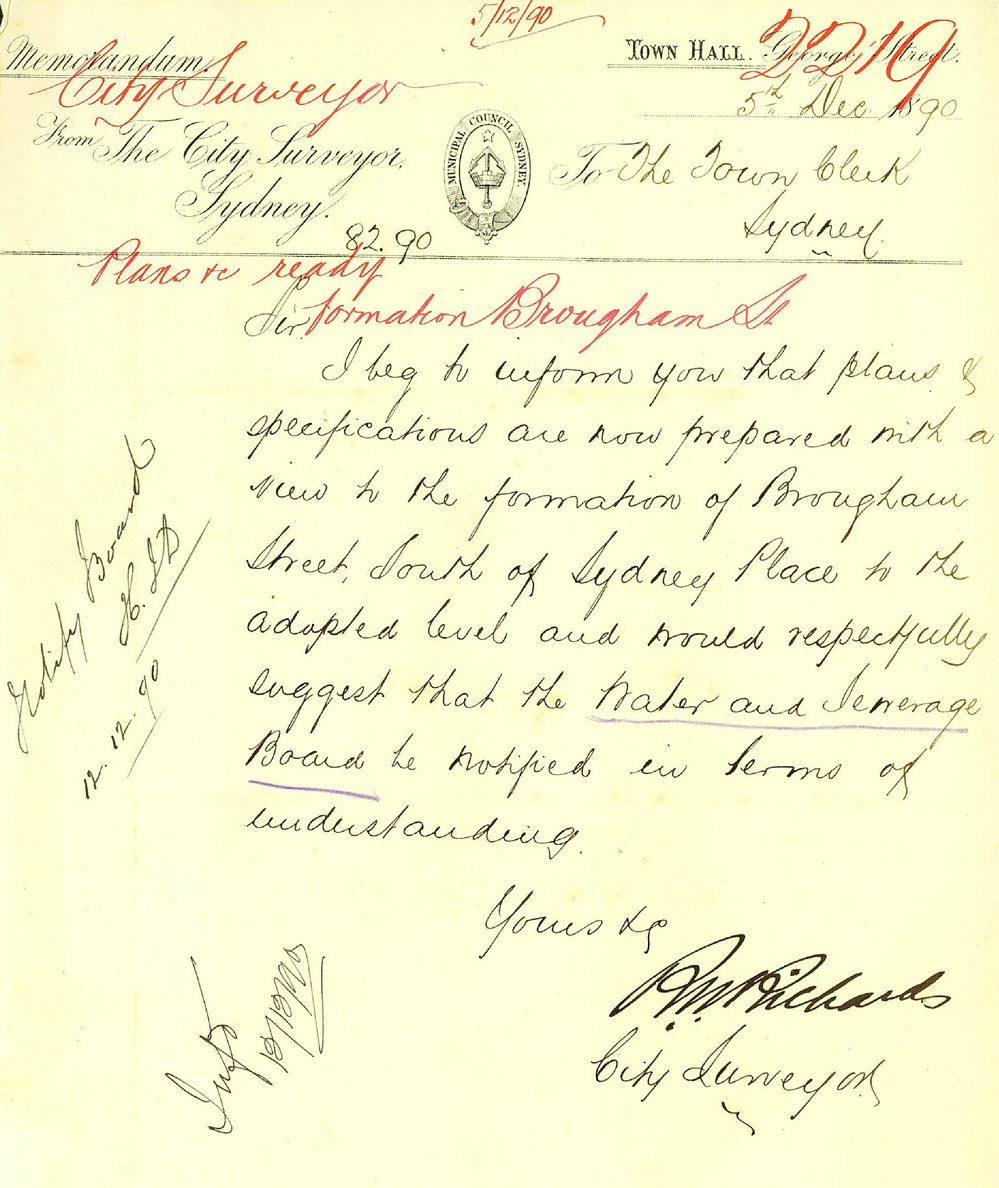 5/12/90
Memorandum. TOWN HALL. George Street.
2219
City Surveyor
5th Dec. 1890
MUNICIPAL COUNCIL SYDNEY
From The City Surveyor, To The Town Clerk
Sydney. Sydney.
82.90
Plans &c ready
Sir, formation Brougham St
I beg to inform you that plans &
specifications are now prepared with a
view to the formation of Brougham
Street, South of Sydney Place to the
adopted level and would respectfully
suggest that the Water and Sewerage
Board be notified in terms of
understanding.
Yours &c
R.W. Richards
City Surveyor
Notify Board
12.12.90